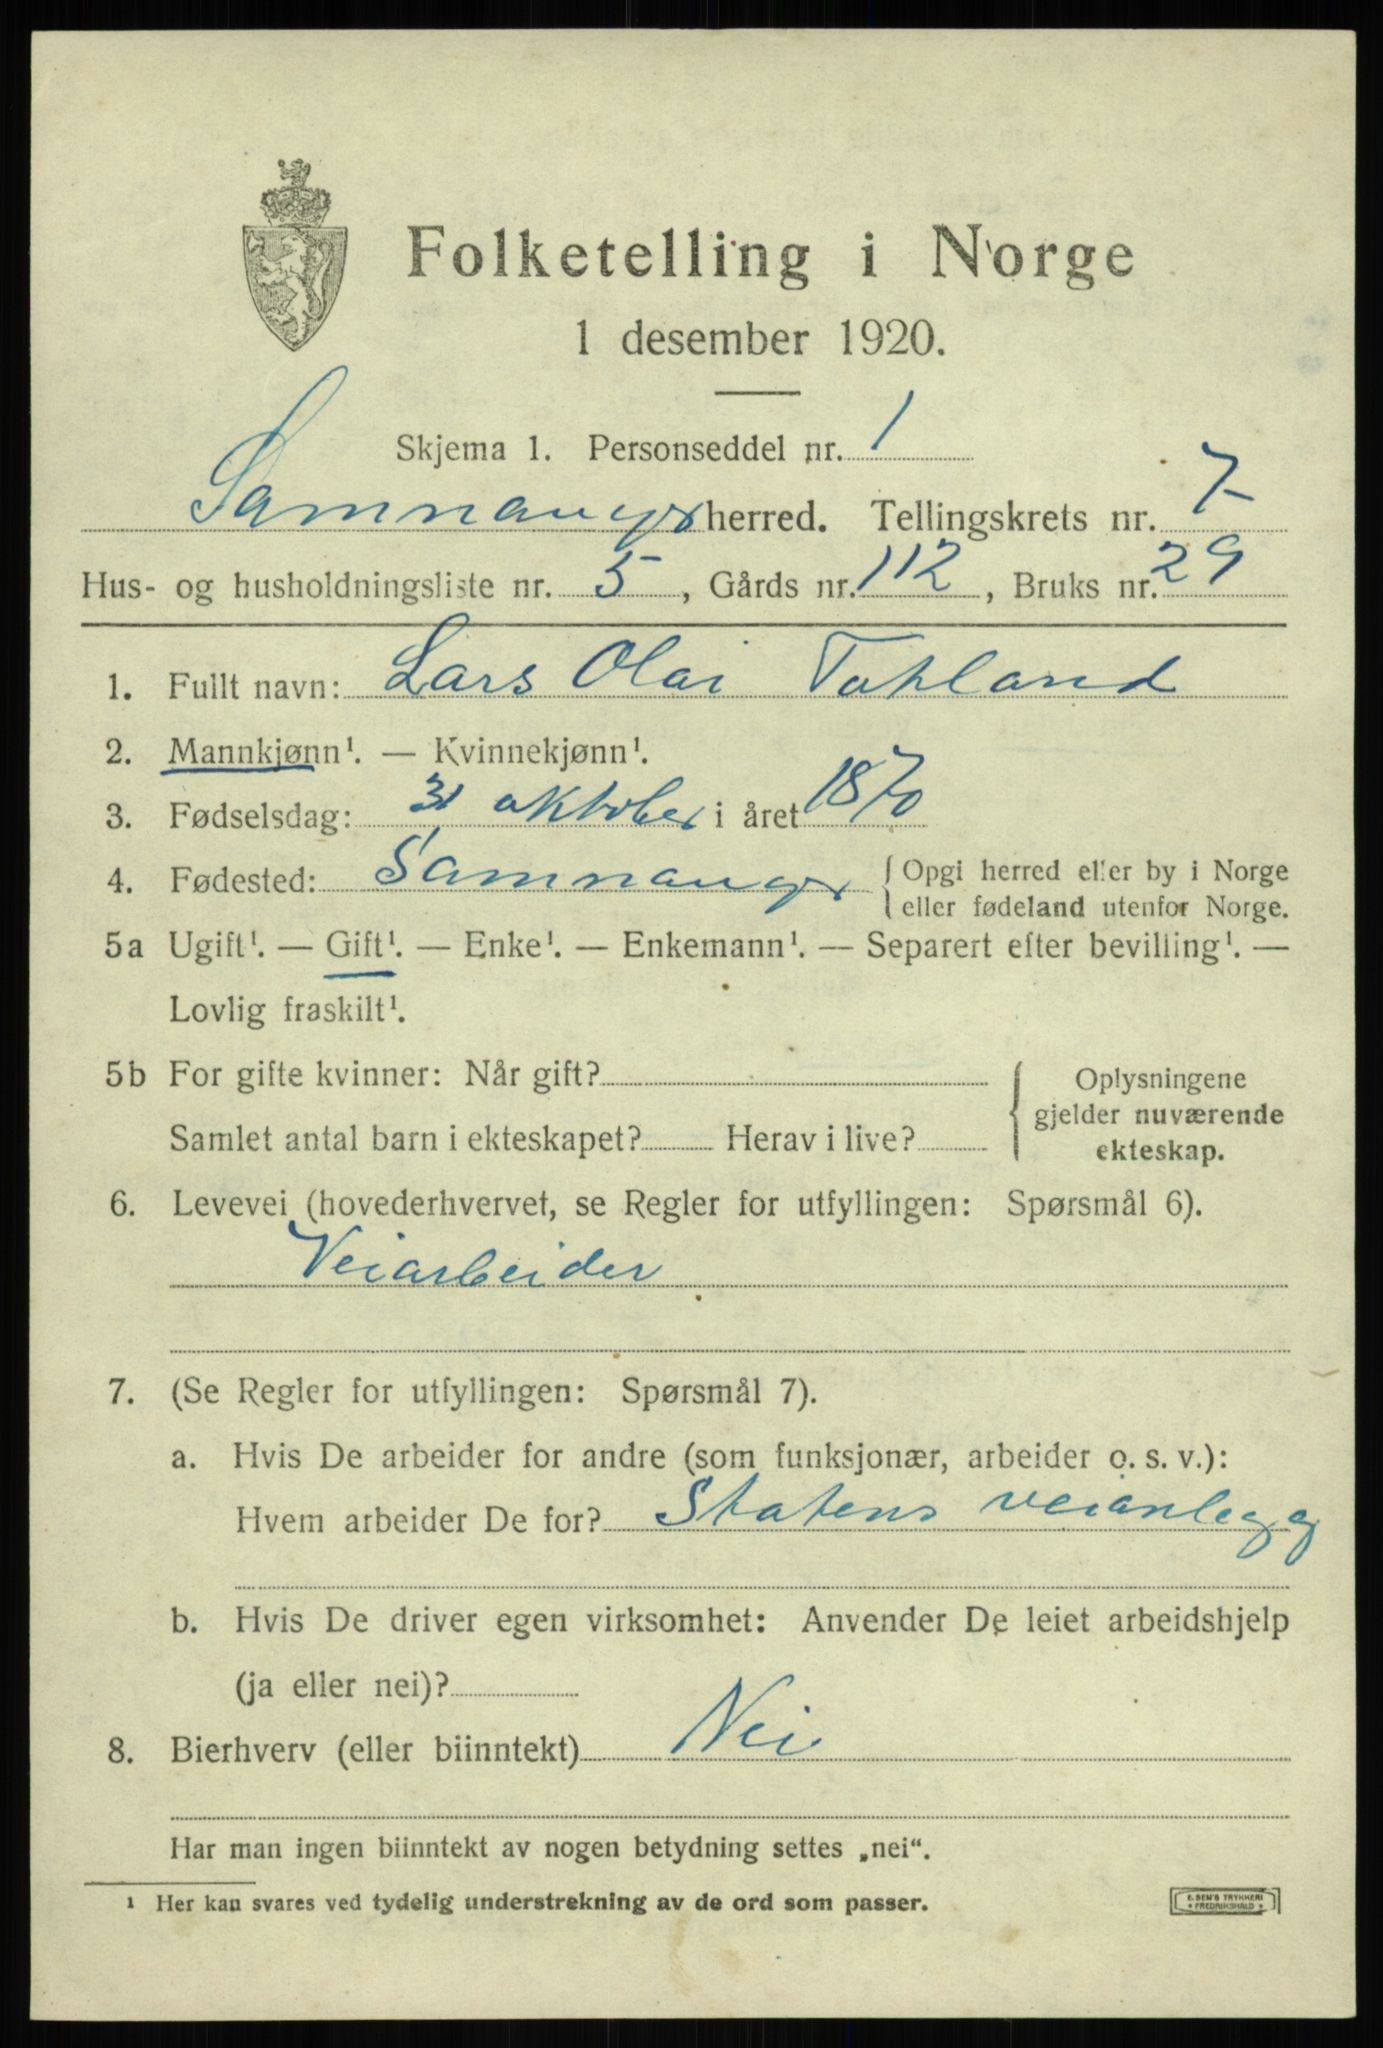 Folketelling i Norge
1 desember 1920.
Skjema 1. Personseddel nr. 1
Samnanger herred. Tellingskrets nr. 7
Hus- og husholdningsliste nr. 5, Gårds nr. 112, Bruks nr. 29
1. Fullt navn: Lars Olai Tahland
2. Mannkjønn¹. — Kvinnekjønn¹.
3. Fødselsdag: 31 oktober i året 1870
4. Fødested: Samnanger { Opgi herred eller by i Norge
eller fødeland utenfor Norge.
5a Ugift¹. — Gift¹. — Enke¹. — Enkemann¹. — Separert efter bevilling¹. —
Lovlig fraskilt¹.
5b For gifte kvinner: Når gift?
Samlet antal barn i ekteskapet? Herav i live?
{ Oplysningene
gjelder nuværende
ekteskap.
6. Levevei (hovederhvervet, se Regler for utfyllingen: Spørsmål 6).
Veiarbeider
7. (Se Regler for utfyllingen: Spørsmål 7).
a. Hvis De arbeider for andre (som funksjonær, arbeider o. s. v.):
Hvem arbeider De for? Statens veianlegg
b. Hvis De driver egen virksomhet: Anvender De leiet arbeidshjelp
(ja eller nei)?
8. Bierhverv (eller biinntekt) Nei
Har man ingen biinntekt av nogen betydning settes „nei“.
¹ Her kan svares ved tydelig understrekning av de ord som passer.
E. SEM'S TRYKKERI
FREDRIKSHALD